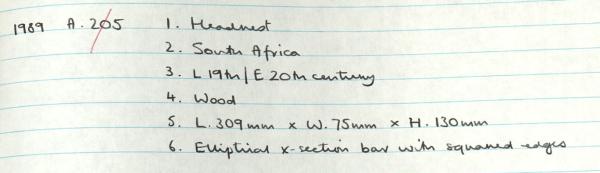 1989 A.205 1. Headrest
2. South Africa
3. L 19th/E 20th century
4. Wood
5. L.309mm x W.75mm x H.130mm
6. Elliptical x-section bar with squared edges